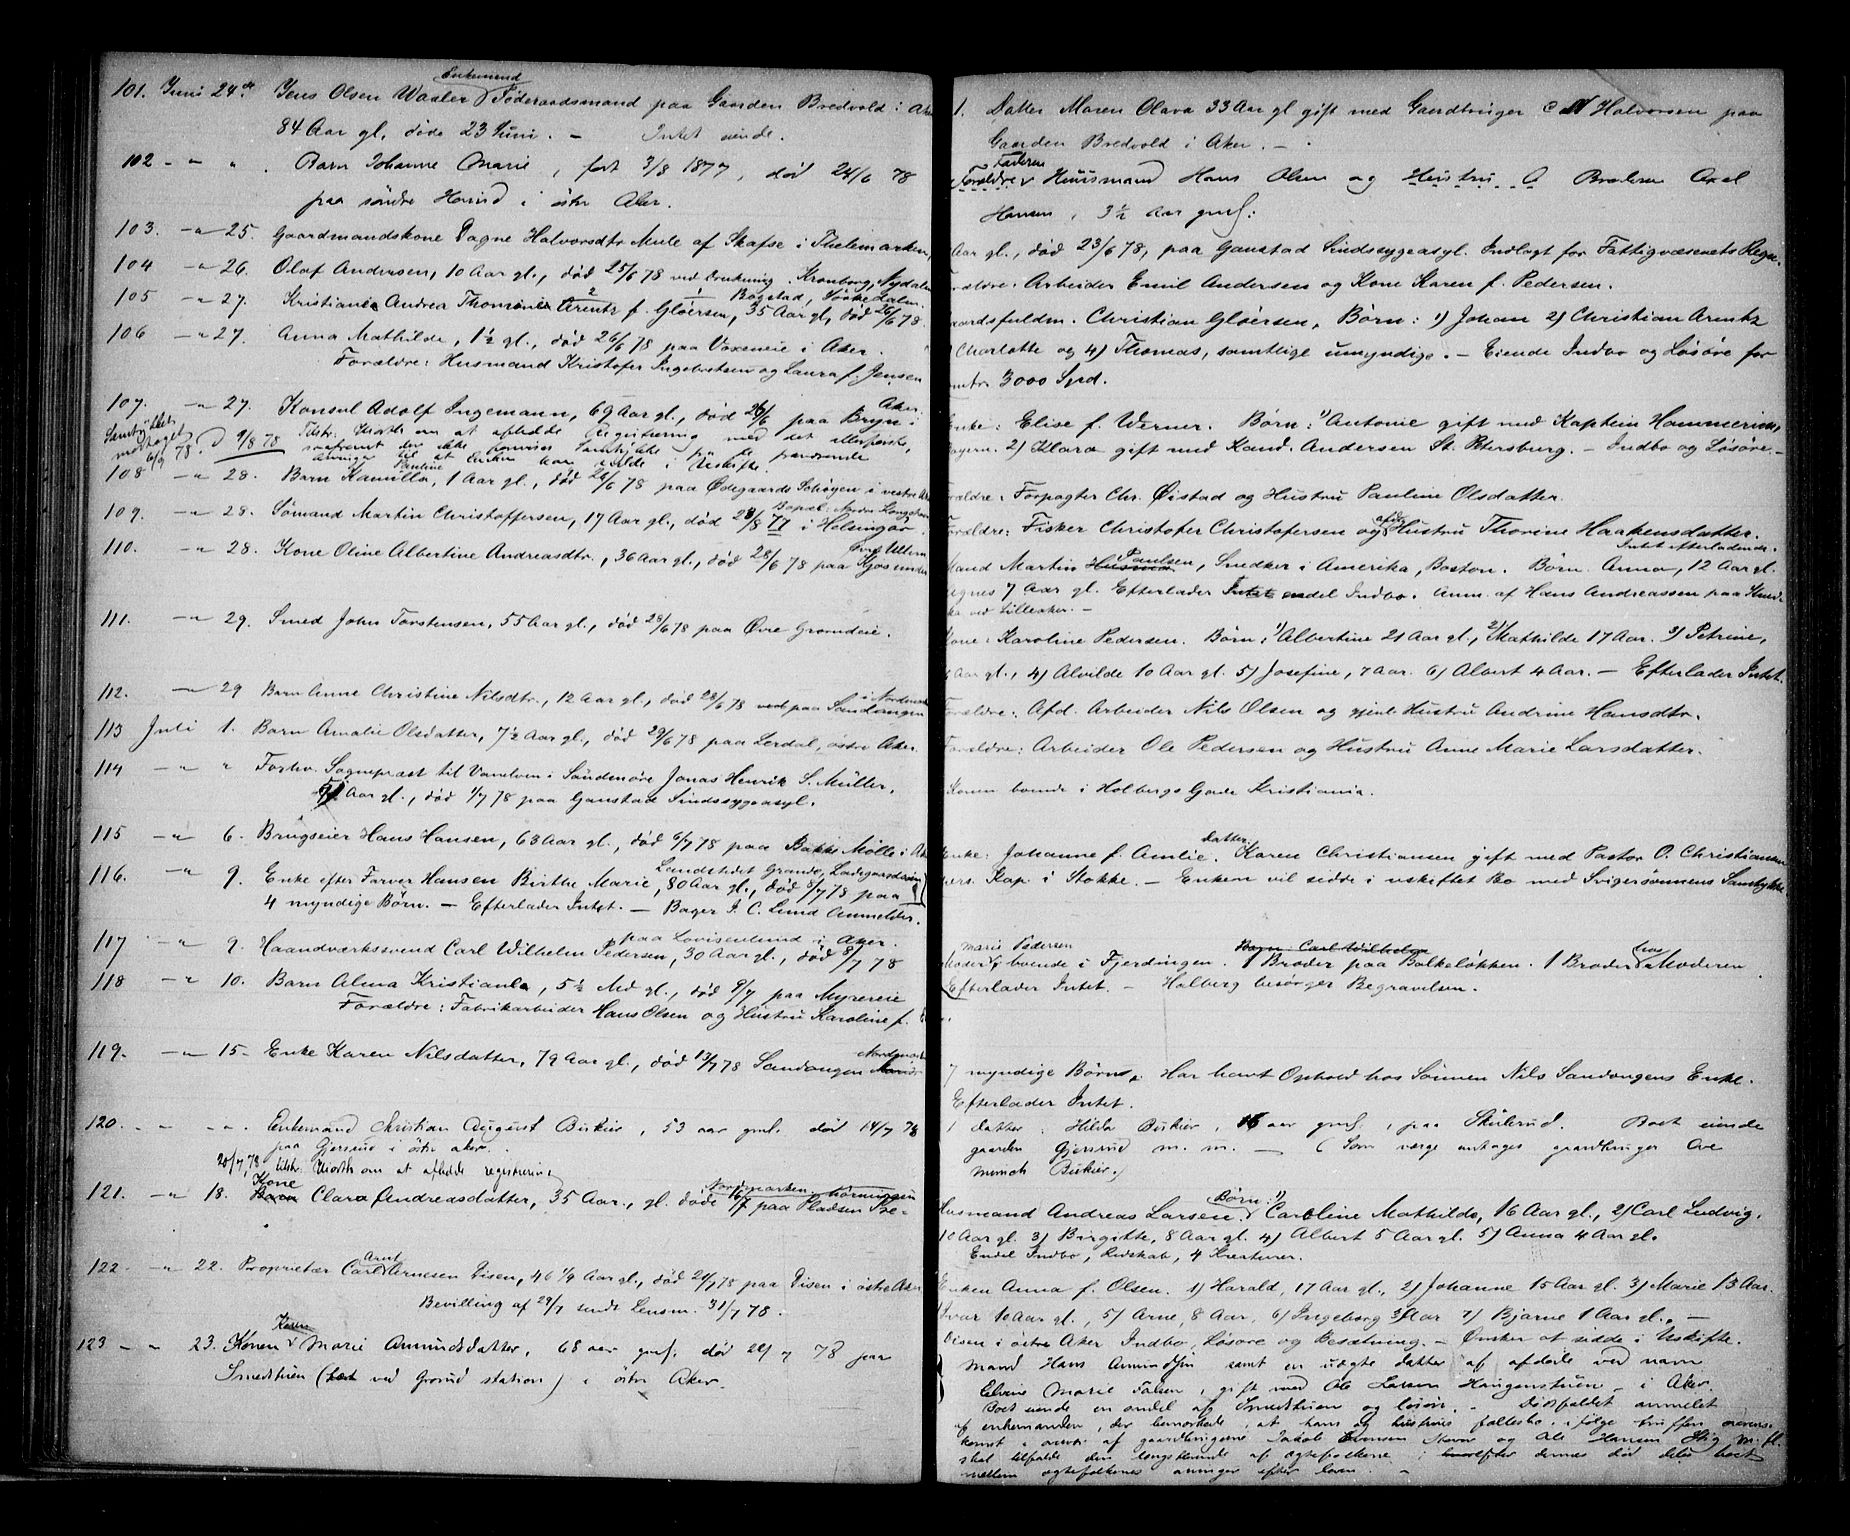 Enkemand
101. Juni 24de Jens Olsen Waaler Föderaadsmand paa Gaarden Bredvold i Aker
84 Aar gl, döde 23 Juni. - Intet eiende.
102 - " " . Barn Johanne Marie, født 3/8 1877, död 24/6 78
paa söndre Hovind i östre Aker.
103. -"- 25. Gaardmandskone Dagne Halvorsdtr Mule af Skafse i Thelemarken,
104 -"- 26. Olaf Andersen, 10 Aar gl., död 25/6 78 ved Drukning. Kronborg, Nydalen
105 -"- 27. Kristiane Andrea Thomine Arentz f. Gløersen, 35 Aar gl, död 26/6 78
Bogstad, Sörkedalen.
106 -"- 27. Anna Mathilde, 1½ gl., död 26/6 78 paa Voxeneie i Aker.
Forældre: Husmand Kristofer Ingebretsen og Laura f. Jensen
107. -"- 27. Konsul Adolf Ingemann, 69 Aar gl., död 26/6 paa Bryn i Aker.
Samtykket modtaget 6/9 78. d 9/8 78 Tilstr. om at afholde Registrering med det allerförste,
saafremt der ikke Samtykke fra de fraværende
Arvinger til at Enken kan sidde i Uskifte.
Pauline
108 -"- 28. Barn Kamilla, 1 Aar gl., död 26/6 78 paa Ødegaards Schøyen i vestre Aker
109. -"- 28. Sömand Martin Christoffersen, 17 Aar gl., död 28/8 77 i Helsingør.
110. -"- 28. Kone Oline Albertine Andreasdtr., 36 Aar gl., död 28/6 78 paa Kjos under
111. -"- 29. Smed John Torstensen, 55 Aar gl., död 28/6 78 paa Øvre Grændeie.
112. -"- 29 Barn Anne Christine Nilsdtr., 12 Aar gl., död 28/6 78 ved paa Sandungen i Nordmarken
113 Juli 1. Barn Amalie Olsdatter, 7½ Aar gl., död 29/6 78 paa Lerdal, östre Aker.
114 -"- " Forhv. Sognepræst til Vanelven i Söndmöre Jonas Henrik S. Müller,
Aar gl., död 1/7 78 paa Gaustad Sindssygeasyl.
115 -"- 6. Brugseier Hans Hansen, 63 Aar gl., död 6/7 78 paa Bakke Mølle i Aker
Landstedet Grande, Ladegaardsøen
116. -"- 9. Enke efter Farver Hansen Birthe Marie, 80 Aar gl., død 8/7 78 paa
4 myndige Börn. - Efterlader Intet. - Bager J. C. Lund Anmelder.
paa Lovisenlund i Aker.
117 -"- 9. Haandværkssvend Carl Wilhelm Pedersen, 30 Aar gl., död 8/7 78
118 -"- 10. Barn Alma Kristiania, 5½ Md gl., död 9/7 paa Myrereie
Forældre: Fabrikarbeider Hans Olsen og Hustru Karoline f.
119. -"- 15. Enke Karen Nilsdatter, 79 Aar gl., död 13/7 78 Sandungen Nordmarken
120. - " " . Enkemand Christian August Bükier, 53 aar gml. död 14/7 78
paa Gjersrud i östre Aker.
20/7 78 tilstr. om at afholde registrering
Kone
121. -"- 18. Barn Clara Andreasdatter, 35 Aar., gl. döde 16/7 paa Pladsen
Nordmarken
Arnt
122. -"- 22. Proprietær Carl Arnesen Disen, 46 ¼ Aar gl., död 21/7 78 paa Disen i östre Aker
Bevilling af 29/7 sendt Lensm. 31/7 78.
Karen
123 - " 23. Konen Marie Amundsdatter, 68 aar gml. död 22/7 78 paa
Smedstuen (tæt ved Grorud station) i östre Aker.
1. Datter Maren Olava 33 Aar gl gift med Gaardbruger C N Halvorsen paa
Gaarden Bredvold i Aker. -
Faderen
Forældre Huusmand Hans Olsen og Hustru Broderen Axel
Hansen, 3½ aar gml:
Aar gl., död 23/6 78, paa Gaustad Sindssygeasyl. Indlagt for Fattigvæsenets Regn.
Forældre: Arbeider Emil Andersen og Kone Karen f. Pedersen.
Gaardsfuldm. Christian Gløersen, Børn: 1) Johan 2) Christian Arentz
Charlotte og 4) Thomas, samtlige umyndige. - Eiende Indbo og Løsøre for
omtr. 3000 Spd.
Enke: Elise f. Werner. Børn: 1) Antonie gift med Kaptein Hammerion,
2) Klara gift med Kand. Andersen St. Petersburg. - Indbo og Løsøre -
Forældre: Forpagter Chr. Øistad og Hustru Pauline Olsdatter.
Forældre: Fisker Christofer Christofersen og afd. Hustru Thorine Haakensdatter.
Intet efterladende.
Mand Martin Paulsen, Snedker i Amerika, Boston. Börn Anna, 12 Aar gl.
Agnes 7 Aar gl. Efterlader Intet endel Indbo. Anm. af Hans Andreassen paa
ved Lilleaker. -
Kone: Karoline Pedersen. Børn: 1) Albertine 21 Aar gl., 2) Mathilde 17 Aar. 3) Petrine,
Aar gl., 4) Alvilde 10 Aar gl. 5) Josefine, 7 Aar. 6) Albert 4 Aar. - Efterlader Intet.
Forældre: Afd. Arbeider Nils Olsen og gjenl. Hustru Andrine Hansdtr.
Forældre: Arbeider Ole Pedersen og Hustru Anne Marie Larsdatter.
Konen boende i Holbergs Gade Kristiania.
Datter
Enke: Johanne f. Amlie. Karen Christiansen gift med Pastor O. Christiansen
pers. Kap. i Stokke. - Enken vil sidde i uskiftet Bo med Svigersönnens Samtykke
Marie Pedersen
Moder boende i Fjerdingen. 1 Broder paa Bolkeløkken. 1 Broder hos Moderen
Børn Carl Wilhelm
Efterlader Intet. - Halberg besörger Begravelsen.
7 myndige Börn. Har havt Ophold hos Sönnen Nils Sandungens Enke.
Efterlader Intet.
1 datter. Hilda Bükier, 16 aar gml., paa Skulerud. Boet eiende
gaarden Gjersrud m. m. - (Som værge antages gaardbruger Ove
Munch Bükier.)
Børn: 1)
Husmand Andreas Larsen. Caroline Mathilde, 16 Aar gl., 2) Carl Ludvig,
10 Aar gl. 3) Birgitte, 8 Aar gl. 4) Albert 5 Aar gl. 5) Anna 4 Aar gl.
Endel Indbo, Redskab, 4 Kreaturer.
Enken Anna f. Olsen. 1) Harald, 17 Aar gl., 2) Johanne 15 Aar gl. 3) Marie 13 Aar.
Ivar 10 Aar gl., 5) Arne, 8 Aar, 6) Ingeborg 3 Aar 7) Bjarne 1 Aar gl. -
Disen i östre Aker Indbo, Løsøre og Besætning. - Ønsker at sidde i Uskifte.
Mand Hans Amundsen samt en uægte datter af afdöde ved navn
Elvine Marie Falsen, gift med Ole Larsen Haugenstuen i Aker.
Boet eiende en andel af Smedstuen og lösöre. - Dödsfaldet anmeldt
af enkemanden, der bemærkede, at hans og hustrues fællesbo i fölge truffen overens-
komst i nærvær af gaardbrugerne Jakob og Ole Hansen m. fl.
skal tilfalde den længstlevende af ægtefolkene, hvorefter dennes död deles boet
mellem ægtefolkenes arvinger efter loven. -